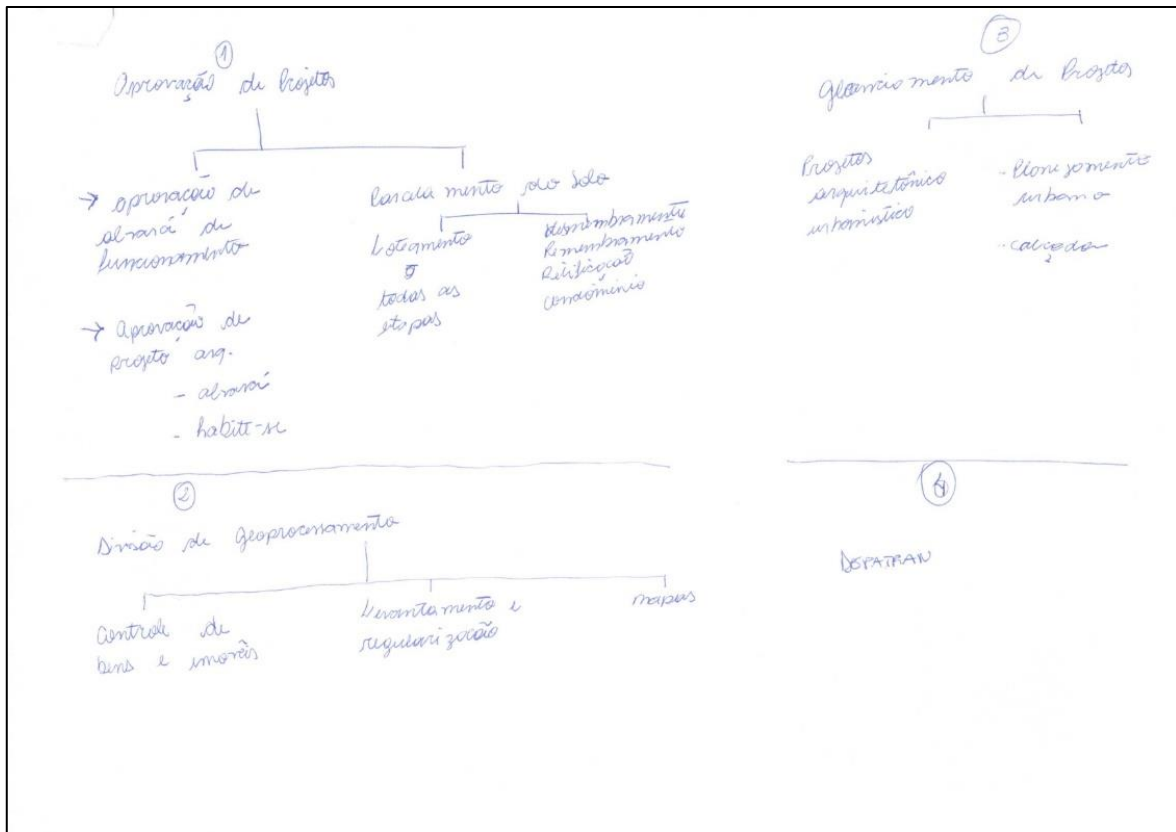 1
Aprovação de Projetos
→ aprovação de
alvará de
funcionamento
→ Aprovação de
projeto arq.
- alvará
- habite-se
Parcelamento do Solo
Loteamento
todas as
etapas
desmembramento
Remembramento
Retificação
condomínio
2
Divisão de Geoprocessamento
Controle de
bens e imovéis
Levantamento e
regularização
mapas
3
Gerenciamento de Projetos
Projetos
arquitetônico
urbanístico
- Planejamento
urbano
- calçadas
4
DEPATRAN